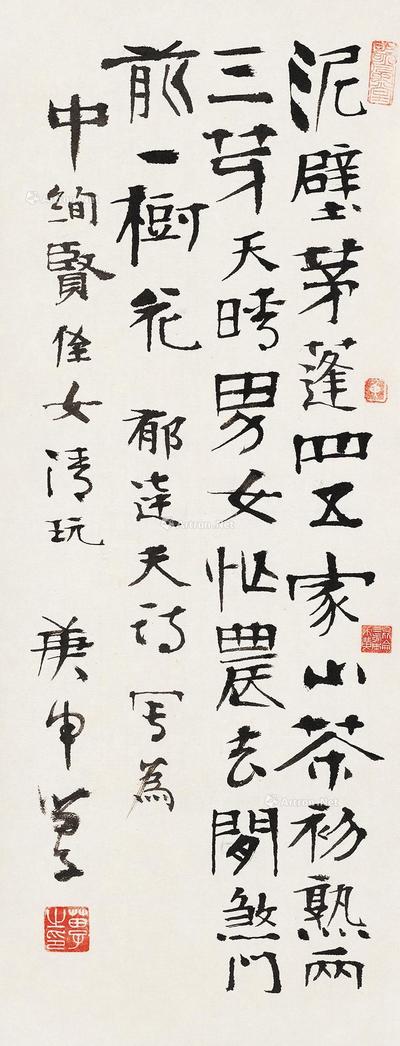 泥壁茅蓬四五家山茶初熟兩
三芽天晴男女忙農去閒煞門
前一樹花 郁達夫詩寫為
中絢賢侄女清玩 庚申
Artron.Net